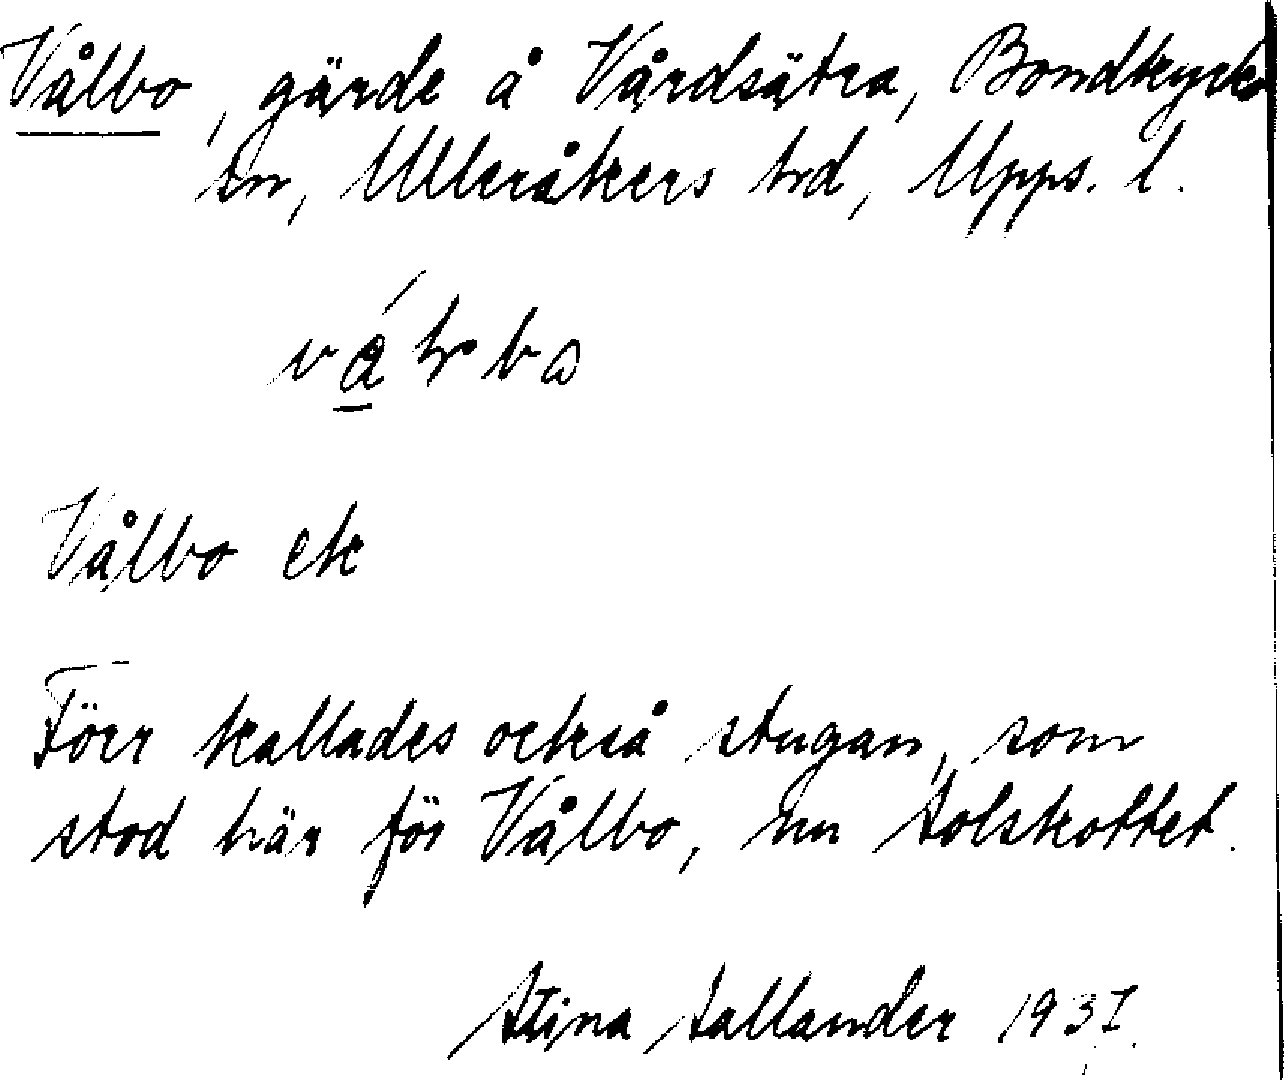 Vålbo, gärde å Vårdsätra, Bondkyrko
sn, Ulleråkers hd, Upps. l.
Vålbo ek
Förr kallades också stugan, som
stod här för Vålbo, nu Solskottet.
Stina Sallander 1937.